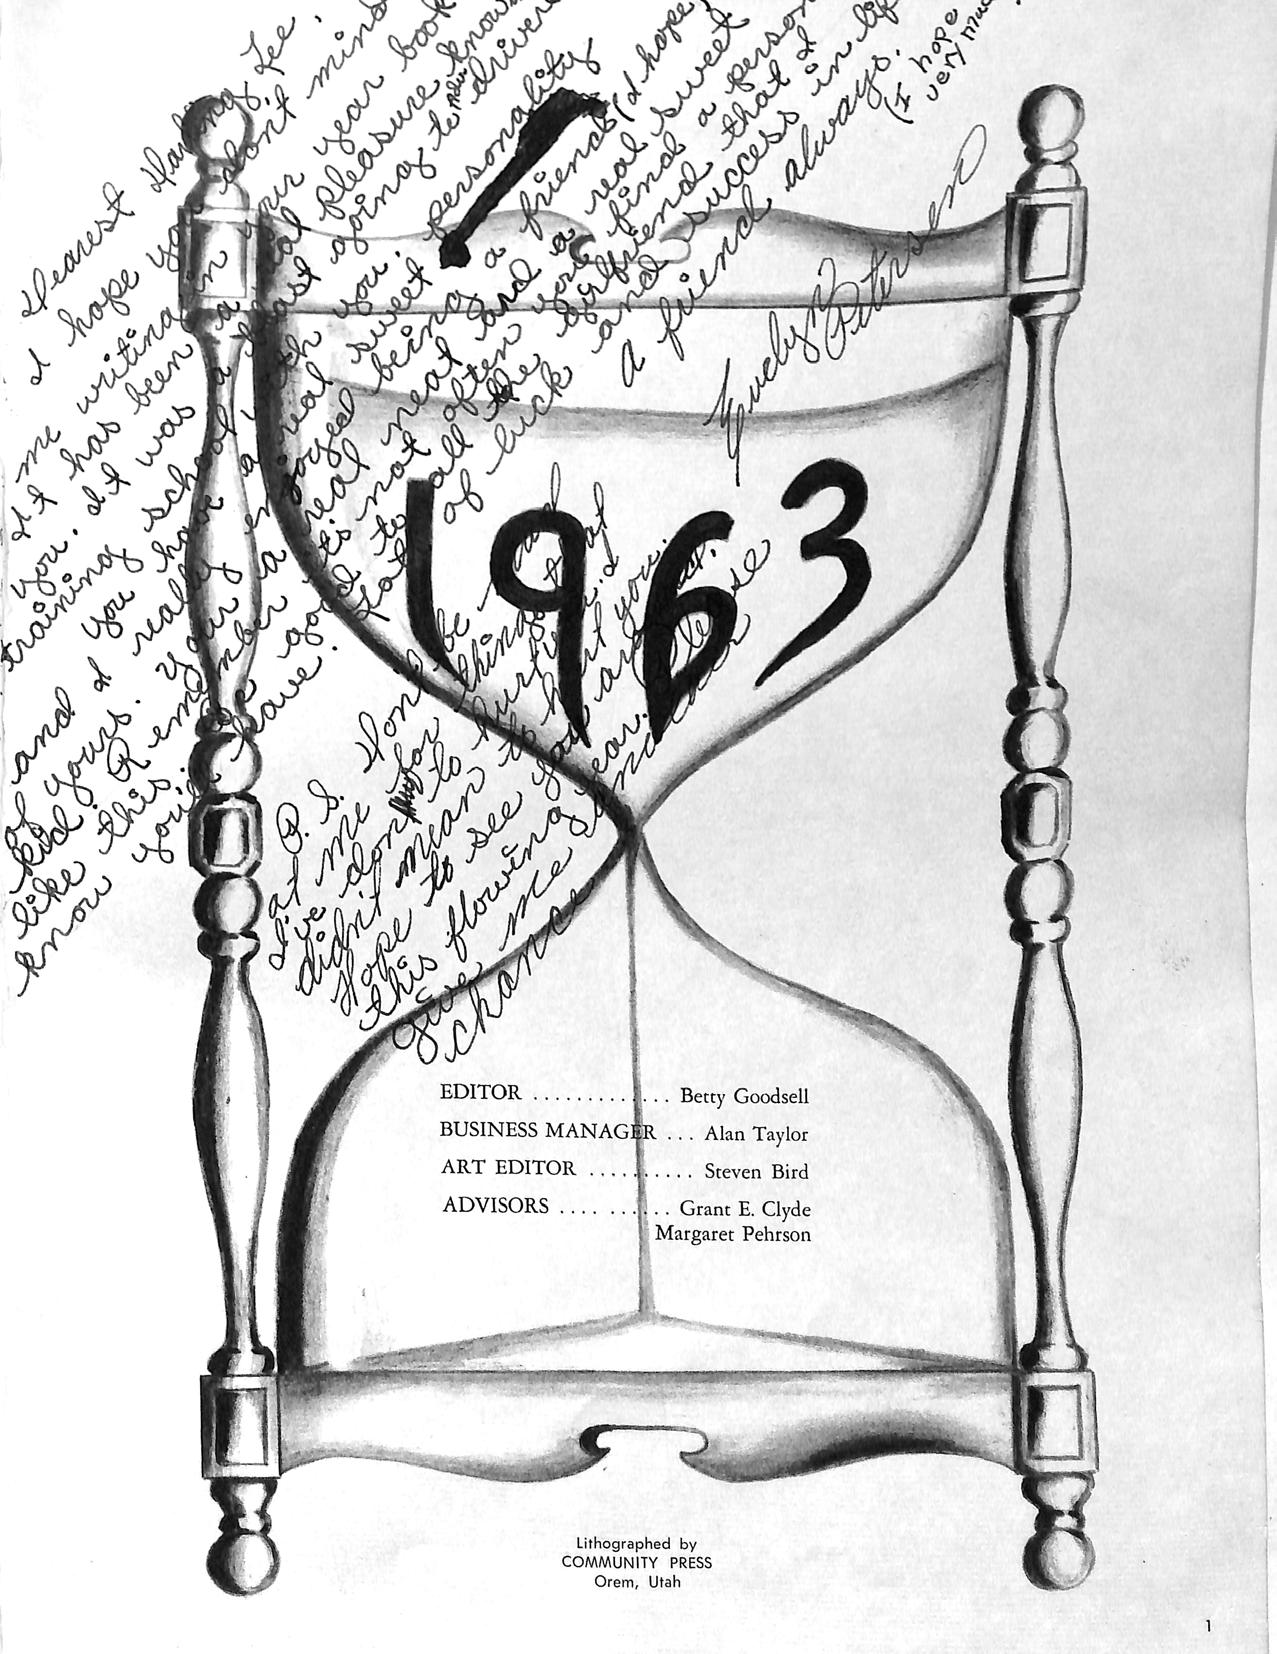 Dearest Harding Lee,
I hope you don't mind
me writing in your year book
It has been a real pleasure
you. It was a blast going to drivers
training school with you.
and I you have a real sweet personality
of yours. really enjoyed being a friend (I hope)
kid. Your a real neat and a real sweet
like this. Remember it's not often you find a person
know you'll have good to all the girlfriend that I
Lots of luck and success in life
A friend always.
(I hope
very much
Evelyn Petersen
1963
P.S. Don't be mad
at me for things that
I've done to hurt
didn't mean to hurt you.
Hope to see you around
this flowing year. Please
give me another
chance
EDITOR ............. Betty Goodsell
BUSINESS MANAGER ... Alan Taylor
ART EDITOR .......... Steven Bird
ADVISORS .... ...... Grant E. Clyde
Margaret Pehrson
Lithographed by
COMMUNITY PRESS
Orem, Utah
1